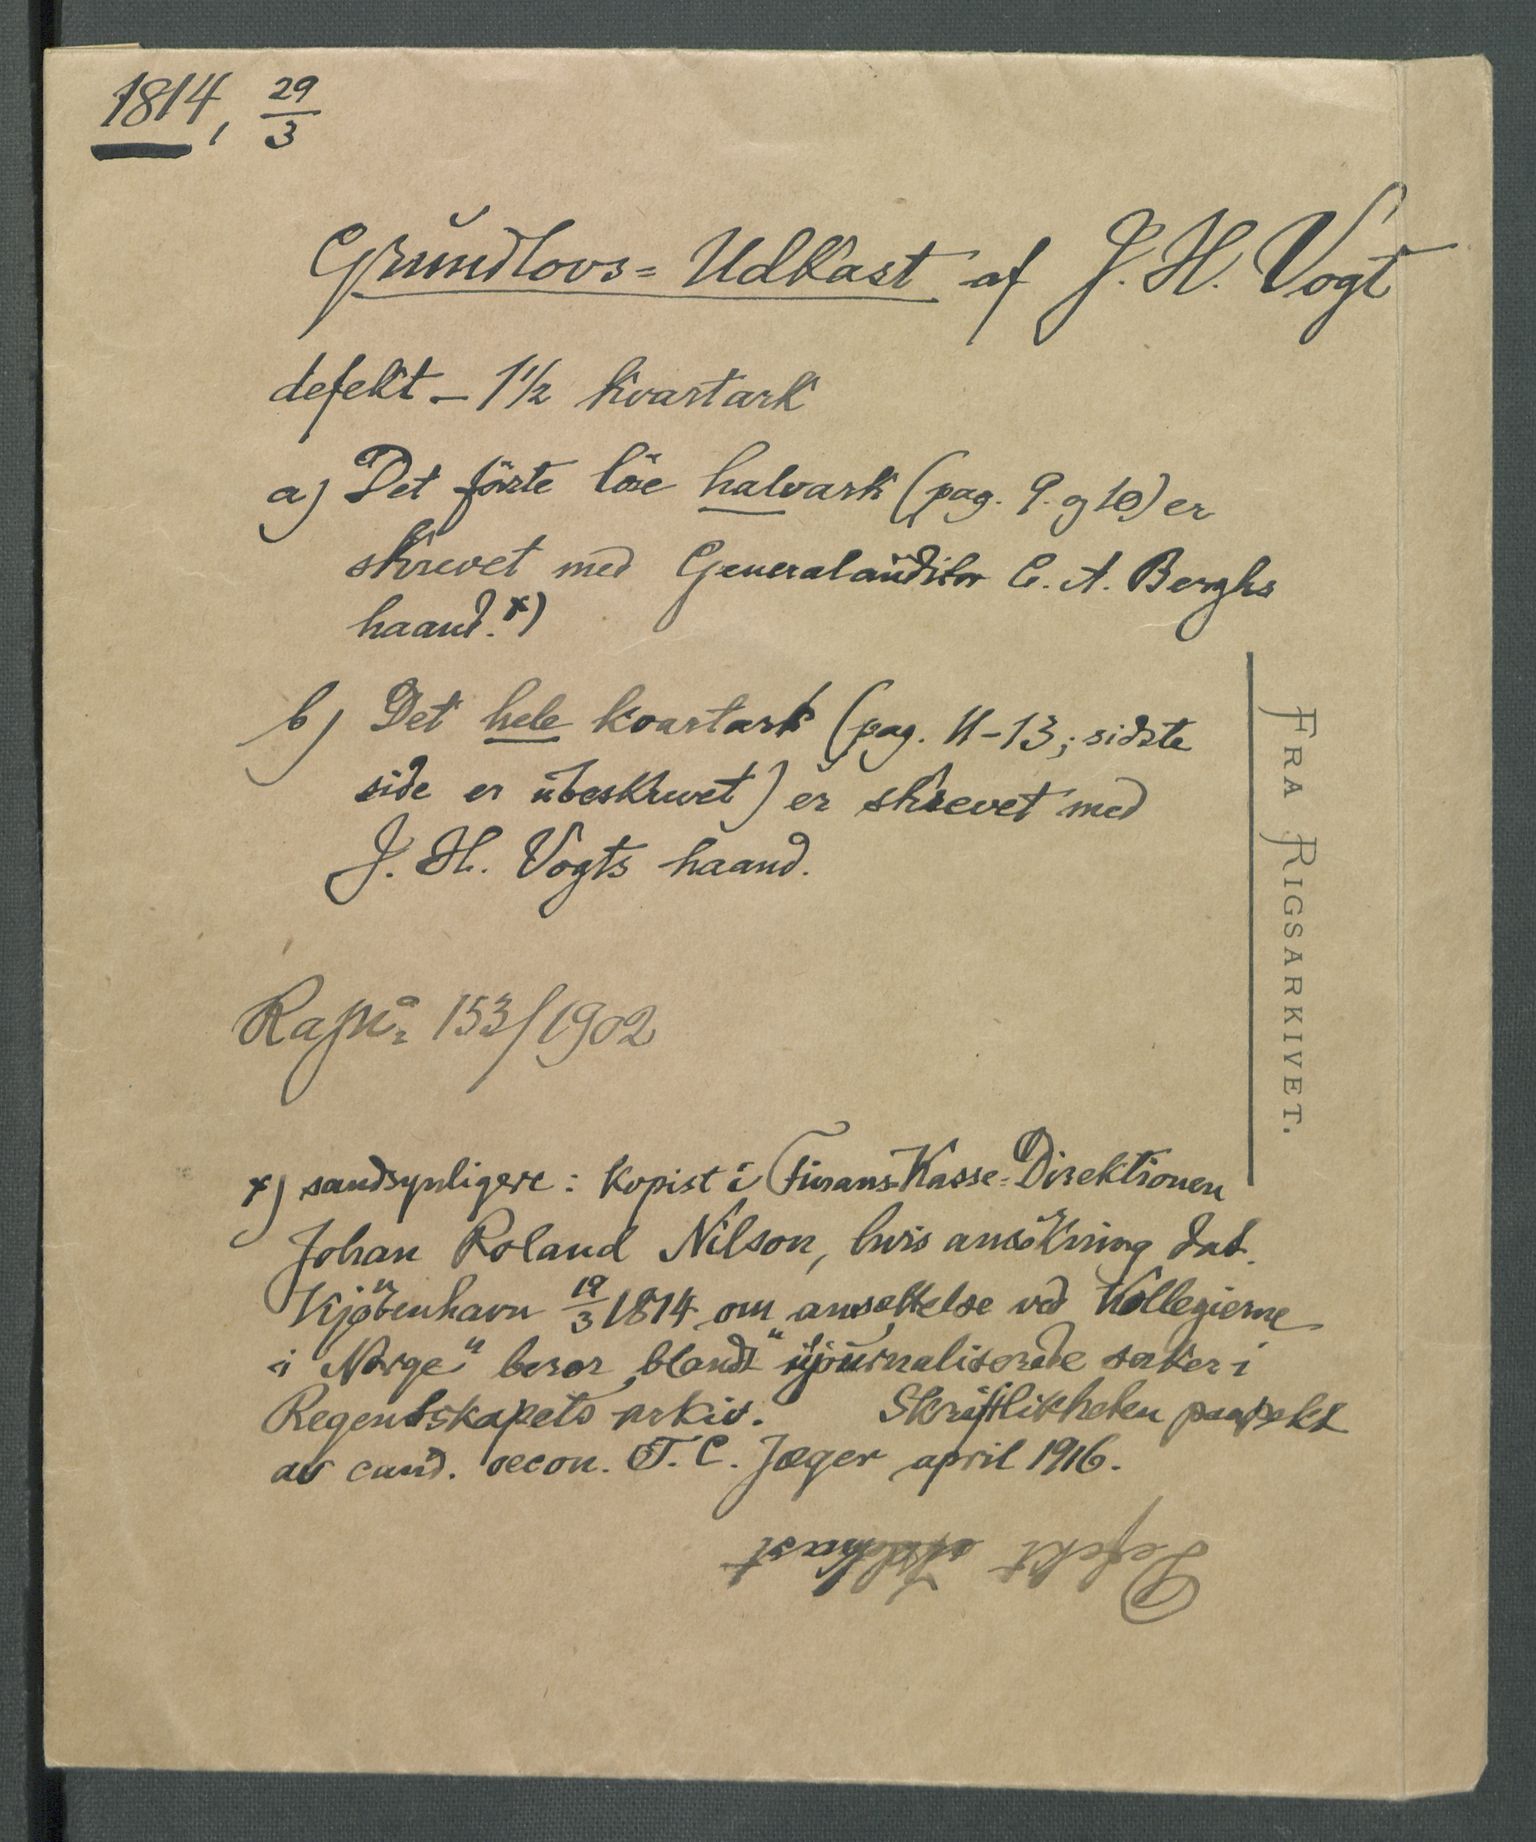 1814, 29/3
Grundlovs=Udkast af J. H. Vogt
defekt – 1½ kvartark
a) Det förste löse halvark (pag. 9. og 10) er
skrevet med Generalauditør C. A. Berghs
haand. x)
b) Det hele kvartark (pag. 11-13; sidste
side er ubeskrevet) er skrevet med
J. H. Vogts haand.
FRA RIGSARKIVET.
153/1902
x) sandsynligere: kopist i Finans-Kasse-Direktionen
Johan Roland Nilson, hvis ansökning dat.
Kjöbenhavn 19/3 1814 om "ansættelse ved Kollegierne
i Norge" beror blandt "ujournaliserede saker i
Regentskapets arkiv. Skriftlikheten paapekt
av cand. oecon. T. C. Jæger april 1916.
Defekt Udkast